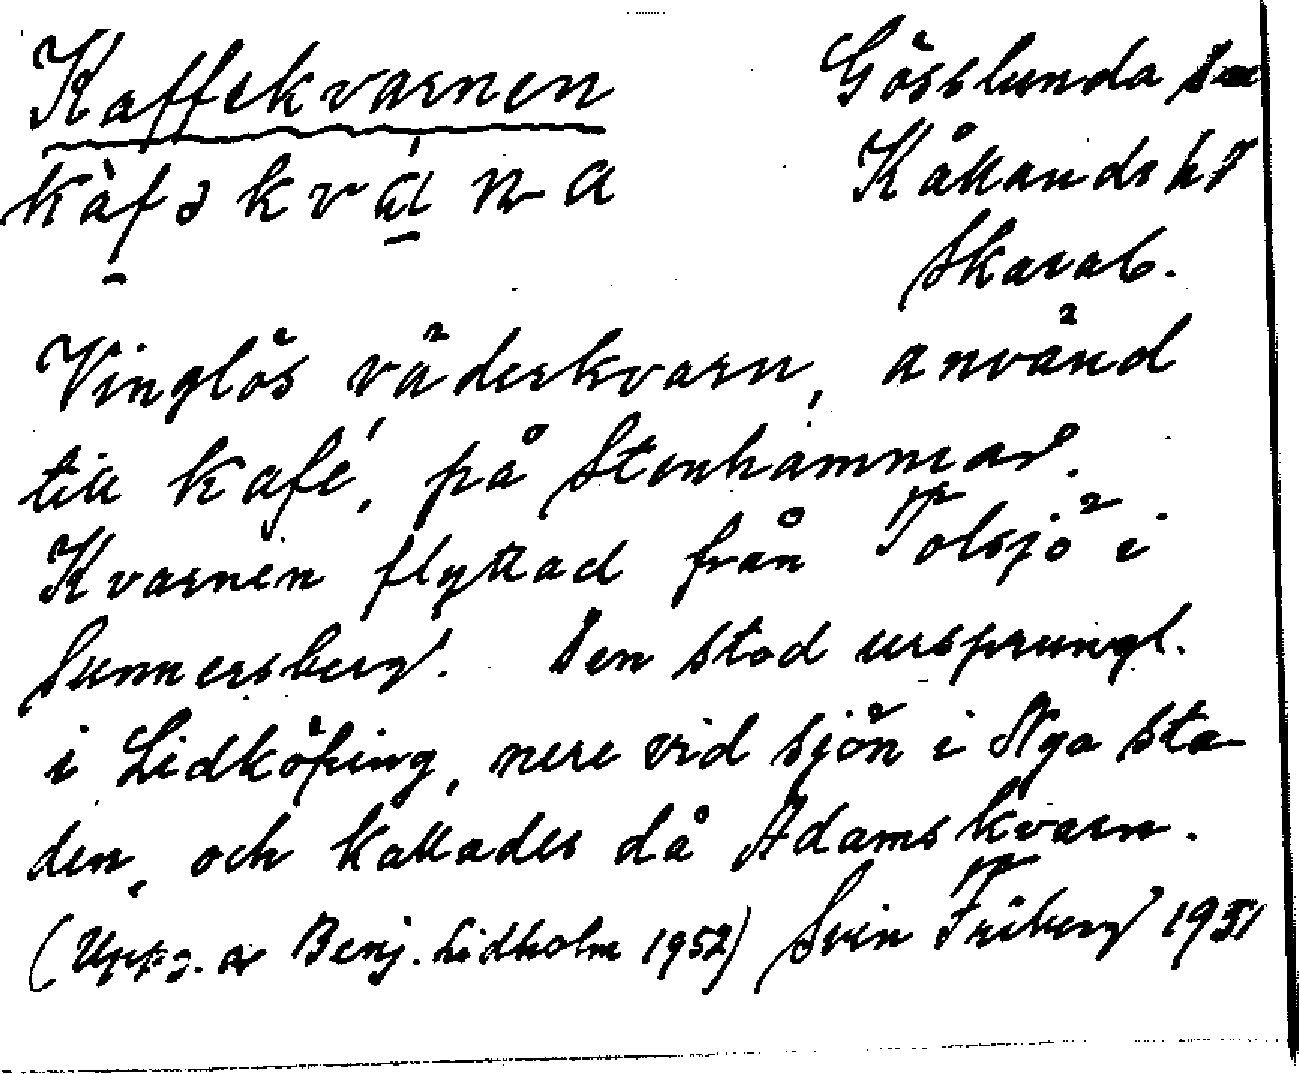 Kaffekvarnen Gösslunda sn
kàfəkvá̱ɳa Kållands hd
Skarab.
Vinglös väderkvarn, använd
till kafé, på Stenhammar.
Kvarnen flyttad från Tolsjö i
Sunnersberg. Den stod ursprungl.
i Lidköping, nere vid sjön i Nya sta-
den, och kallades då Adamskvarn.
(Uppg. av Benj. Lidholm 1952) Sven Friberg 1951